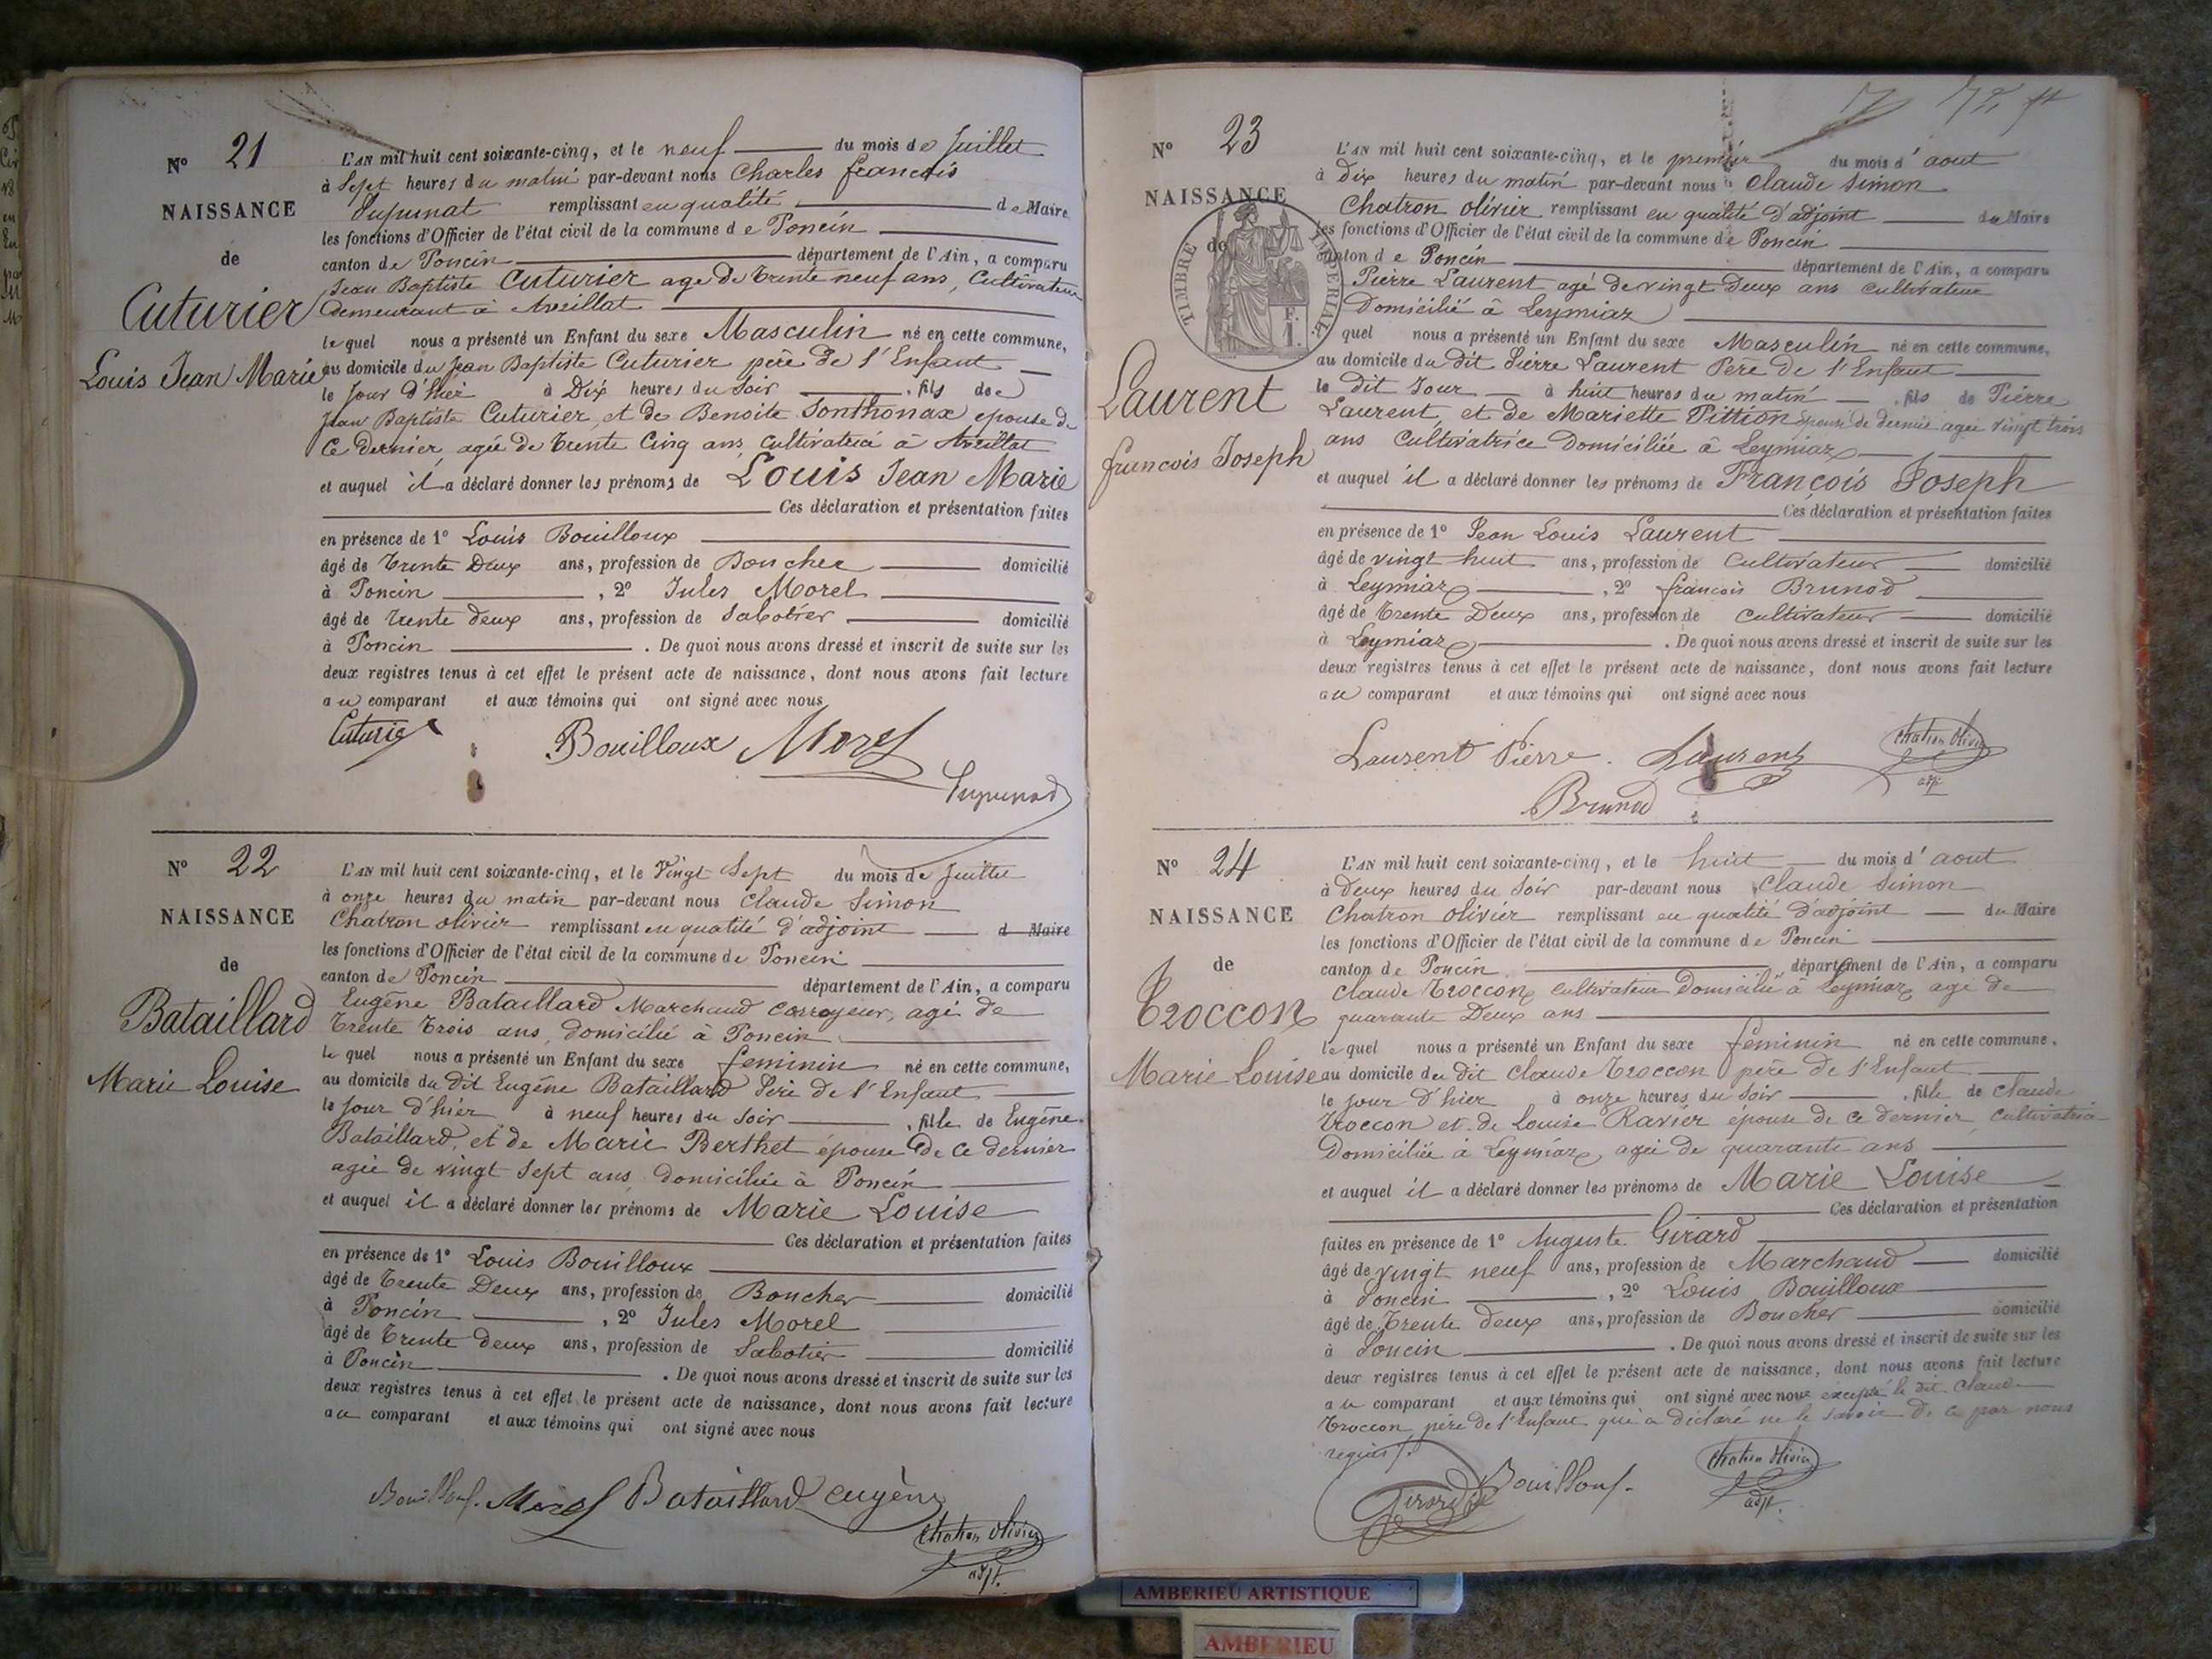 N° 21
NAISSANCE
de
Cuturier
Louis Jean Marie
L'AN mil huit cent soixante-cinq, et le neuf du mois de Juillet
à Sept heures du matin par-devant nous Charles François
remplissant en qualité de Maire
les fonctions d'Officier de l'état civil de la commune de Poncin
canton de Poncin département de l'Ain, a comparu
Jean Baptiste Cuturier agé de trente neuf ans, Cultivateur
demeurant à
lequel nous a présenté un Enfant du sexe Masculin né en cette commune,
au domicile du Jean Baptiste Cuturier père de l'Enfant
le jour d'hier à Dix heures du soir, fils de
Jean Baptiste Cuturier, et de Benoite Sonthonax epouse de
ce dernier, agée de trente cinq ans, cultivatrice à
et auquel il a déclaré donner les prénoms de Louis Jean Marie
Ces déclaration et présentation faites
en présence de 1° Louis Bouilloux
âgé de trente Deux ans, profession de Boucher domicilié
à Poncin, 2° Jules Morel
âgé de trente deux ans, profession de Sabotier domicilié
à Poncin. De quoi nous avons dressé et inscrit de suite sur les
deux registres tenus à cet effet le présent acte de naissance, dont nous avons fait lecture
au comparant et aux témoins qui ont signé avec nous
Cuturier Bouilloux Morel
N° 22
NAISSANCE
de
Bataillard
Marie Louise
L'AN mil huit cent soixante-cinq, et le Vingt Sept du mois de Juillet
à onze heures du matin par-devant nous Claude Simon
Chatron olivier remplissant en qualité d'adjoint d Maire
les fonctions d'Officier de l'état civil de la commune de Poncin
canton de Poncin département de l'Ain, a comparu
Eugène Bataillard Marchand Corroyeur, agé de
trente trois ans, domicilié à Poncin
lequel nous a présenté un Enfant du sexe feminin né en cette commune,
au domicile du dit Eugène Bataillard Père de l'Enfant
le jour d'hier à neuf heures du soir, fille de Eugène
Bataillard, et de Marie Berthet épouse de ce dernier
agée de vingt sept ans domiciliée à Poncin
et auquel il a déclaré donner les prénoms de Marie Louise
Ces déclaration et présentation faites
en présence de 1° Louis Bouilloux
âgé de trente Deux ans, profession de Boucher domicilié
à Poncin, 2° Jules Morel
âgé de trente deux ans, profession de Sabotier domicilié
à Poncin. De quoi nous avons dressé et inscrit de suite sur les
deux registres tenus à cet effet le présent acte de naissance, dont nous avons fait lecture
au comparant et aux témoins qui ont signé avec nous
Bouilloux. Morel Bataillard eugène
Chatron Olivier
adjt.
N° 23
NAISSANCE
de
TIMBRE IMPERIAL
F.
1.
Laurent
francois Joseph
L'AN mil huit cent soixante-cinq, et le premier du mois d'aout
à Dix heures du matin par-devant nous Claude Simon
Chatron olivier remplissant en qualité d'adjoint du Maire
les fonctions d'Officier de l'état civil de la commune de Poncin
canton de Poncin département de l'Ain, a comparu
Pierre Laurent agé de vingt Deux ans cultivateur
Domicilié à Leymiaz
quel nous a présenté un Enfant du sexe Masculin né en cette commune,
au domicile du dit Pierre Laurent Père de l'Enfant
le dit Jour à huit heures du matin, fils de Pierre
Laurent, et de Mariette Pittion épouse de dernier agée vingt trois
ans Cultivatrice Domiciliée à Leymiaz
et auquel il a déclaré donner les prénoms de François Joseph
Ces déclaration et présentation faites
en présence de 1° Jean Louis Laurent
âgé de vingt huit ans, profession de Cultivateur domicilié
à Leymiaz, 2° francois Brunod
âgé de trente Deux ans, profession de Cultivateur domicilié
à Leymiaz. De quoi nous avons dressé et inscrit de suite sur les
deux registres tenus à cet effet le présent acte de naissance, dont nous avons fait lecture
au comparant et aux témoins qui ont signé avec nous
Laurent Pierre. Laurent Chatron Olivier
adjt
Brunod
N° 24
NAISSANCE
de
Troccon
Marie Louise
L'AN mil huit cent soixante-cinq, et le huit du mois d'aout
à Deux heures du soir par-devant nous Claude Simon
Chatron olivier remplissant en qualité d'adjoint du Maire
les fonctions d'Officier de l'état civil de la commune de Poncin
canton de Poncin département de l'Ain, a comparu
Claude Troccon, cultivateur Domicilié à Leymiaz agé de
quarante Deux ans
lequel nous a présenté un Enfant du sexe feminin né en cette commune,
au domicile du dit Claude Troccon père de l'Enfant
le jour d'hier à onze heures du soir, fille de Claude
Troccon et de Louise Ravier épouse de ce dernier, cultivatrice
Domiciliée à Leymiaz, agée de quarante ans
et auquel il a déclaré donner les prénoms de Marie Louise
Ces déclaration et présentation
faites en présence de 1° Auguste Girard
âgé de vingt neuf ans, profession de Marchand domicilié
à Poncin, 2° Louis Bouilloux
âgé de trente deux ans, profession de Boucher domicilié
à Poncin. De quoi nous avons dressé et inscrit de suite sur les
deux registres tenus à cet effet le présent acte de naissance, dont nous avons fait lecture
au comparant et aux témoins qui ont signé avec nous excepté le dit Claude
Troccon père de l'Enfant qui a déclaré ne le savoir de ce par nous
requis.
Girard Bouilloux. Chatron Olivier
adjt.
AMBERIEU ARTISTIQUE
AMBERIEU